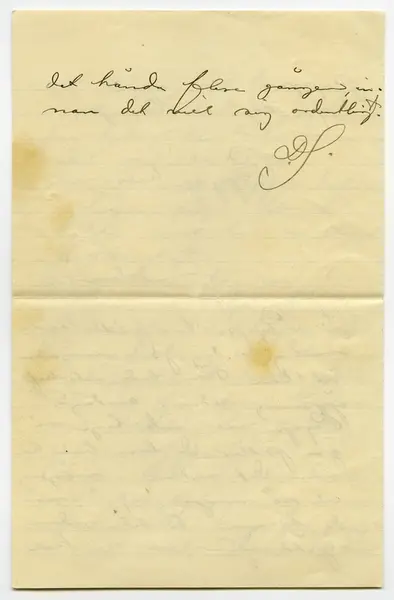 det hända flera gånger, in-
nan det vill sig ordentligt.
D.S.